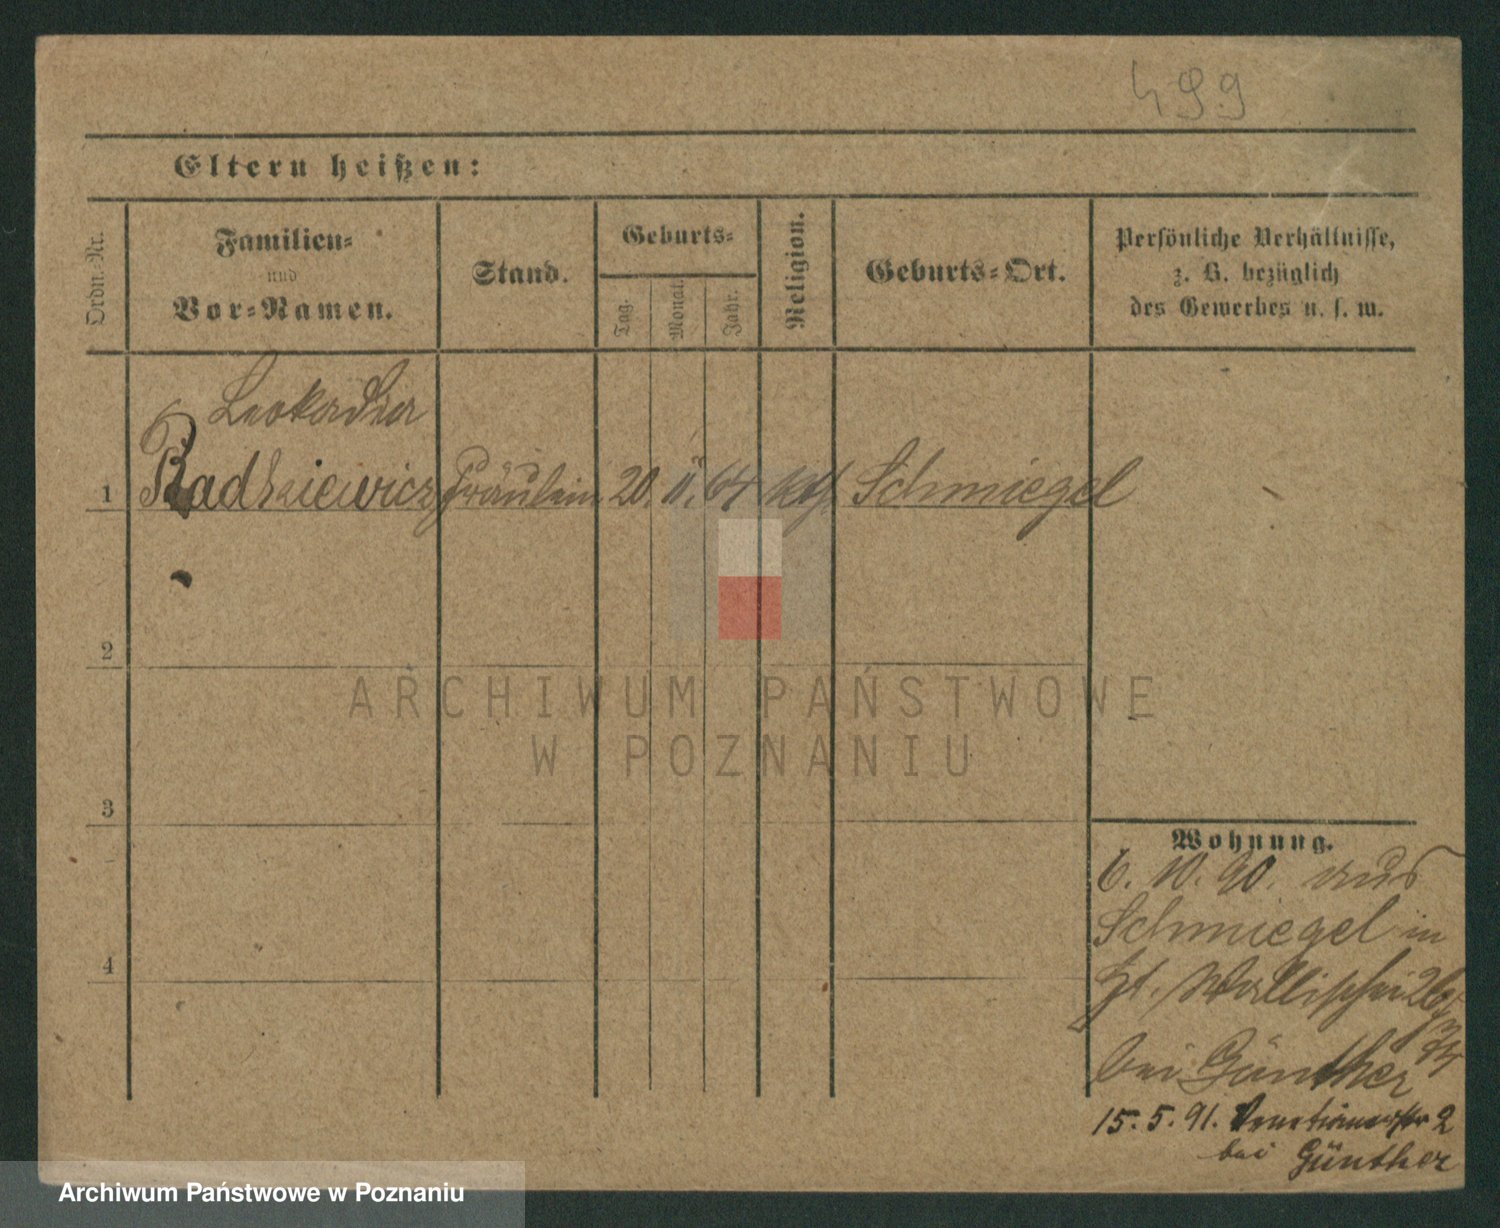 499
Eltern heißen:
Ordn. Nr.
Familien-
und
Vor-Namen.
Stand.
Geburts-
Tag.
Monat.
Jahr.
Religion.
Geburts-Ort.
Persönliche Verhältnisse,
z. B. bezüglich
des Gewerbes u. s. w.
Leokadia
1 Radkiewicz Fräulein 20. 11. 64 kth. Schmiegel
2
ARCHIWUM PAŃSTWOWE
W POZNANIU
3
Wohnung.
6. 10. 90. aus
Schmiegel in
4
Wallischei
bei Günther
15. 5. 91. Venetianerstr 2
bei Günther
Archiwum Państwowe w Poznaniu